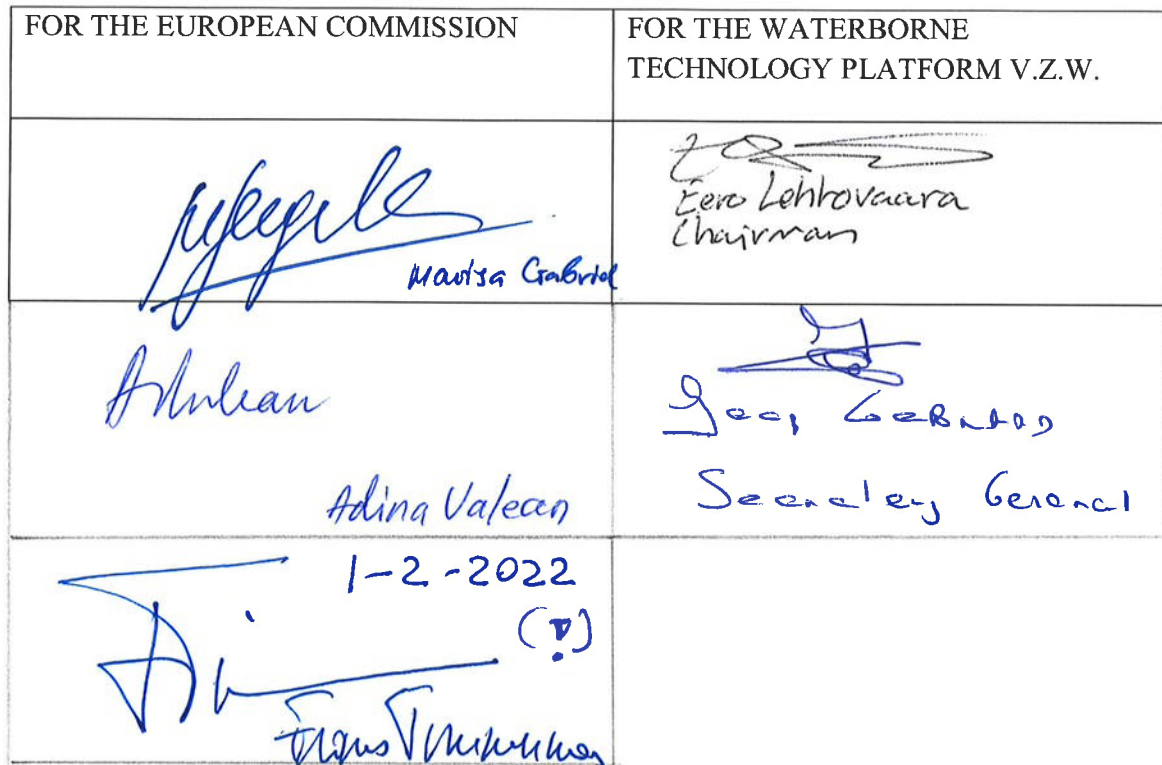 FOR THE EUROPEAN COMMISSION
FOR THE WATERBORNE
TECHNOLOGY PLATFORM V.Z.W.
Mariya Gabriel
Eero Lehtovaara
Chairman
Adina Valean
Secretary General
1-2-2022
(!)
Frans Timmermans